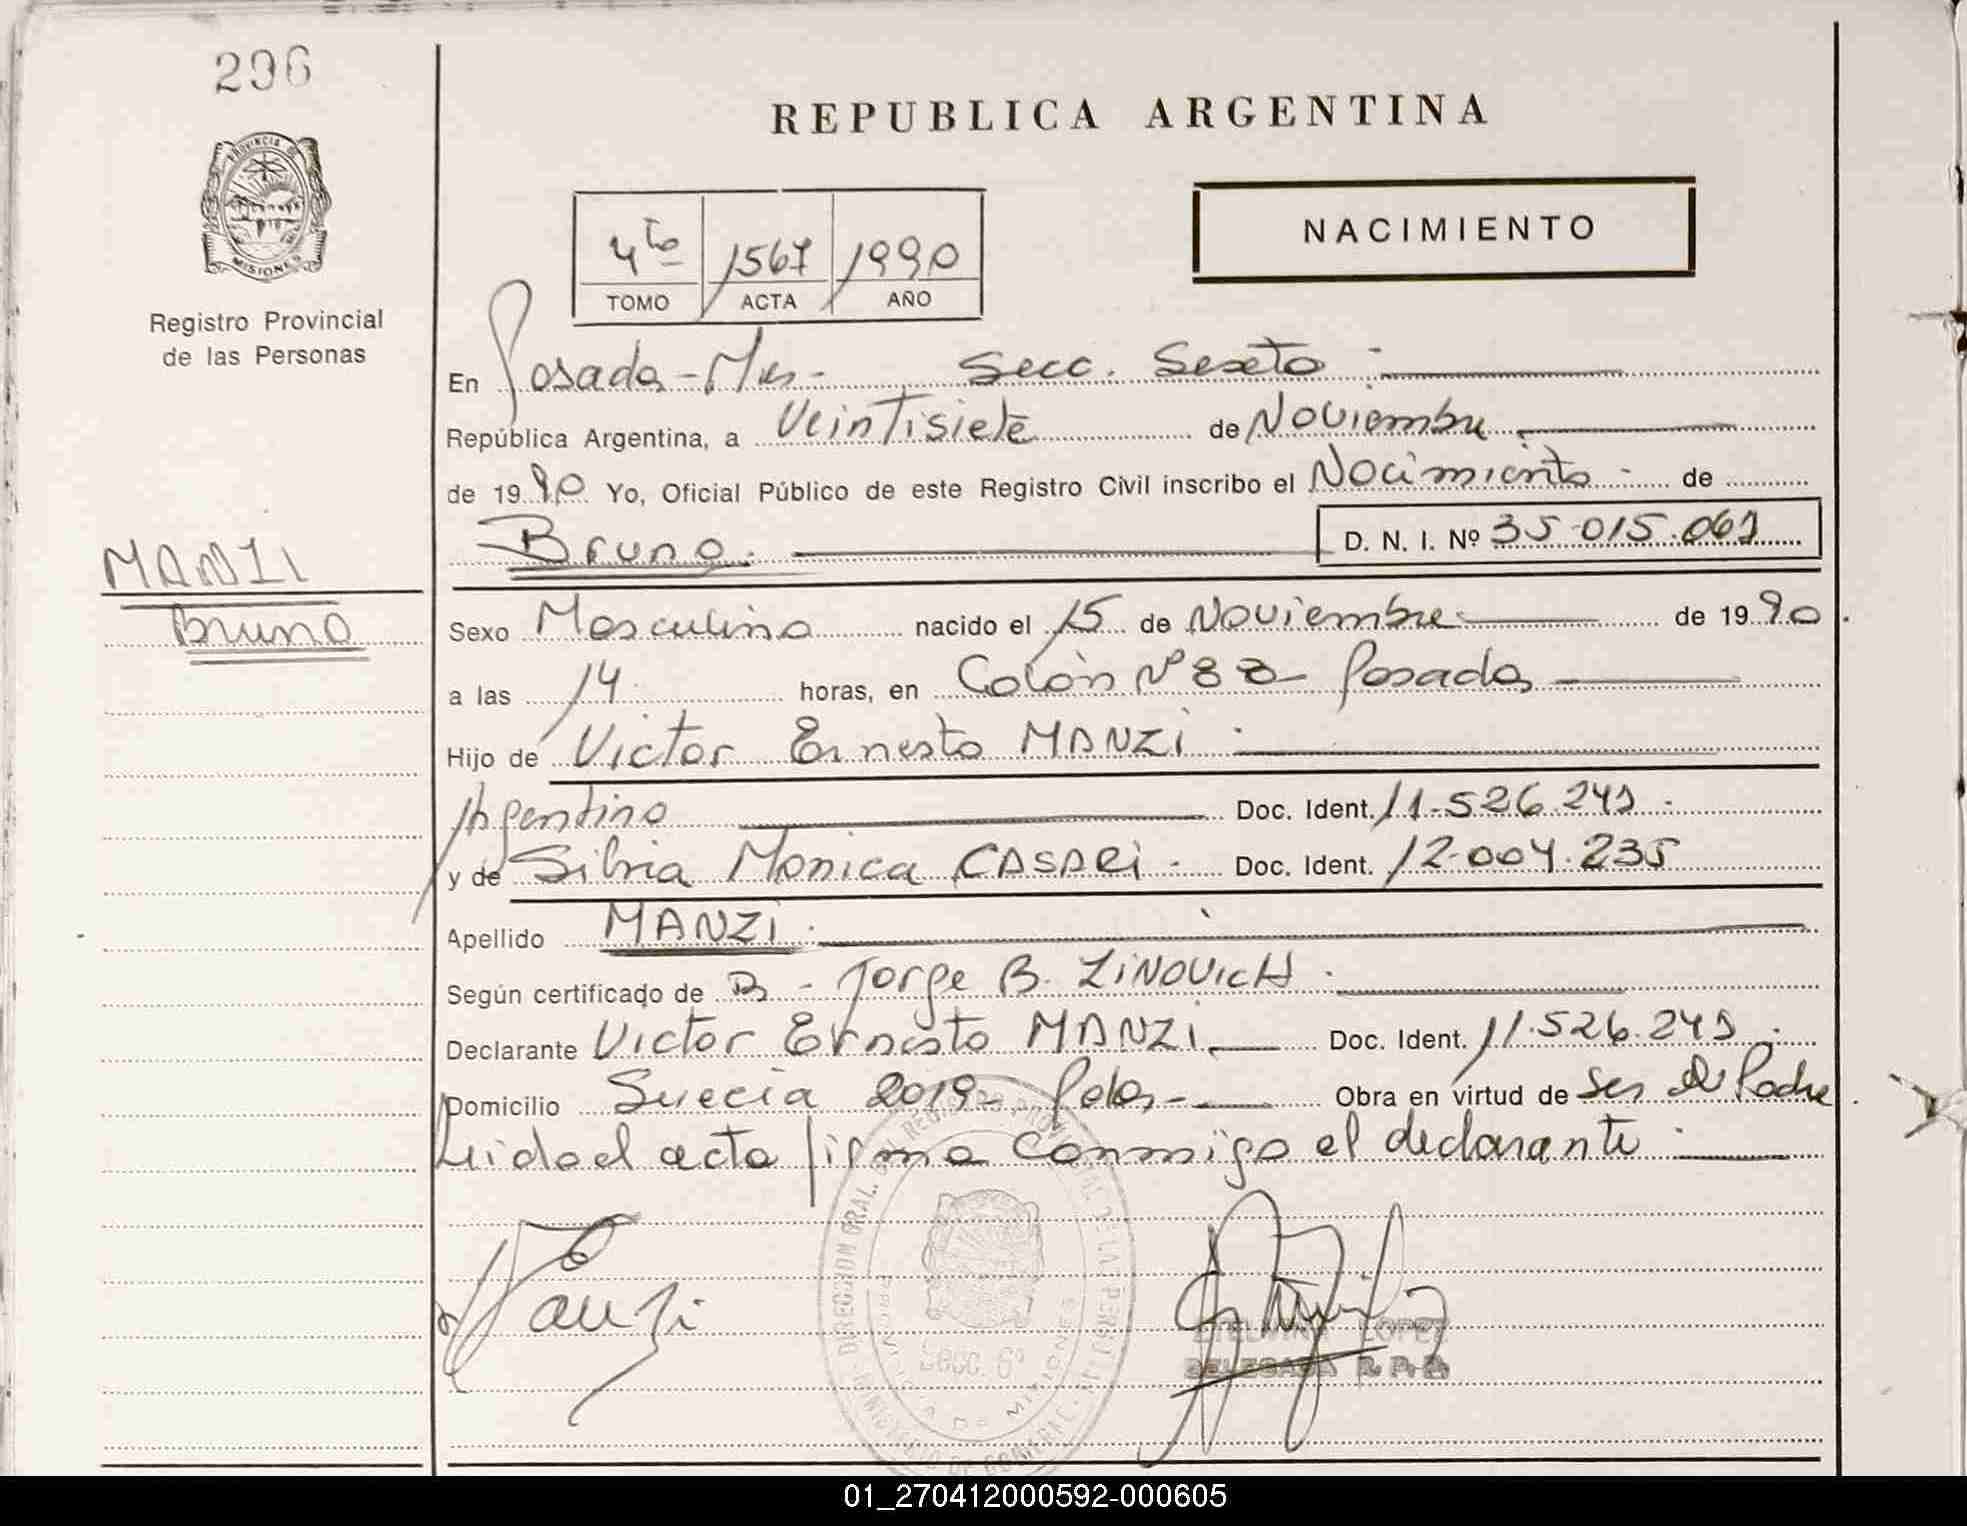 296
REPUBLICA ARGENTINA
PROVINCIA DE
MISIONES
Registro Provincial
de las Personas
NACIMIENTO
4to 1567 1990
TOMO ACTA AÑO
En Posadas - Mnes - Secc. Sexta
República Argentina, a Veintisiete de Noviembre
de 1990 Yo, Oficial Público de este Registro Civil inscribo el Nacimiento de
Bruno. D. N. I. Nº 35.015.061
MANZI
Bruno
Sexo Masculino nacido el 15 de Noviembre de 1990
a las 14 horas, en Colón Nº 82 - Posadas
Hijo de Victor Ernesto MANZI
Argentino Doc. Ident. 11.526.249
y de Silvia Monica CASARI Doc. Ident. 12.004.235
Apellido MANZI
Según certificado de Dr. Jorge B. ZINOVICH
Declarante Victor Ernesto MANZI Doc. Ident. 11.526.249
Domicilio Suecia 2019 - Pdas - Obra en virtud de Ser el Padre
Leida el acta firma conmigo el declarante
Manzi
Secc. 6º
LOPEZ
DELEGADA R. P. P.
01_270412000592-000605